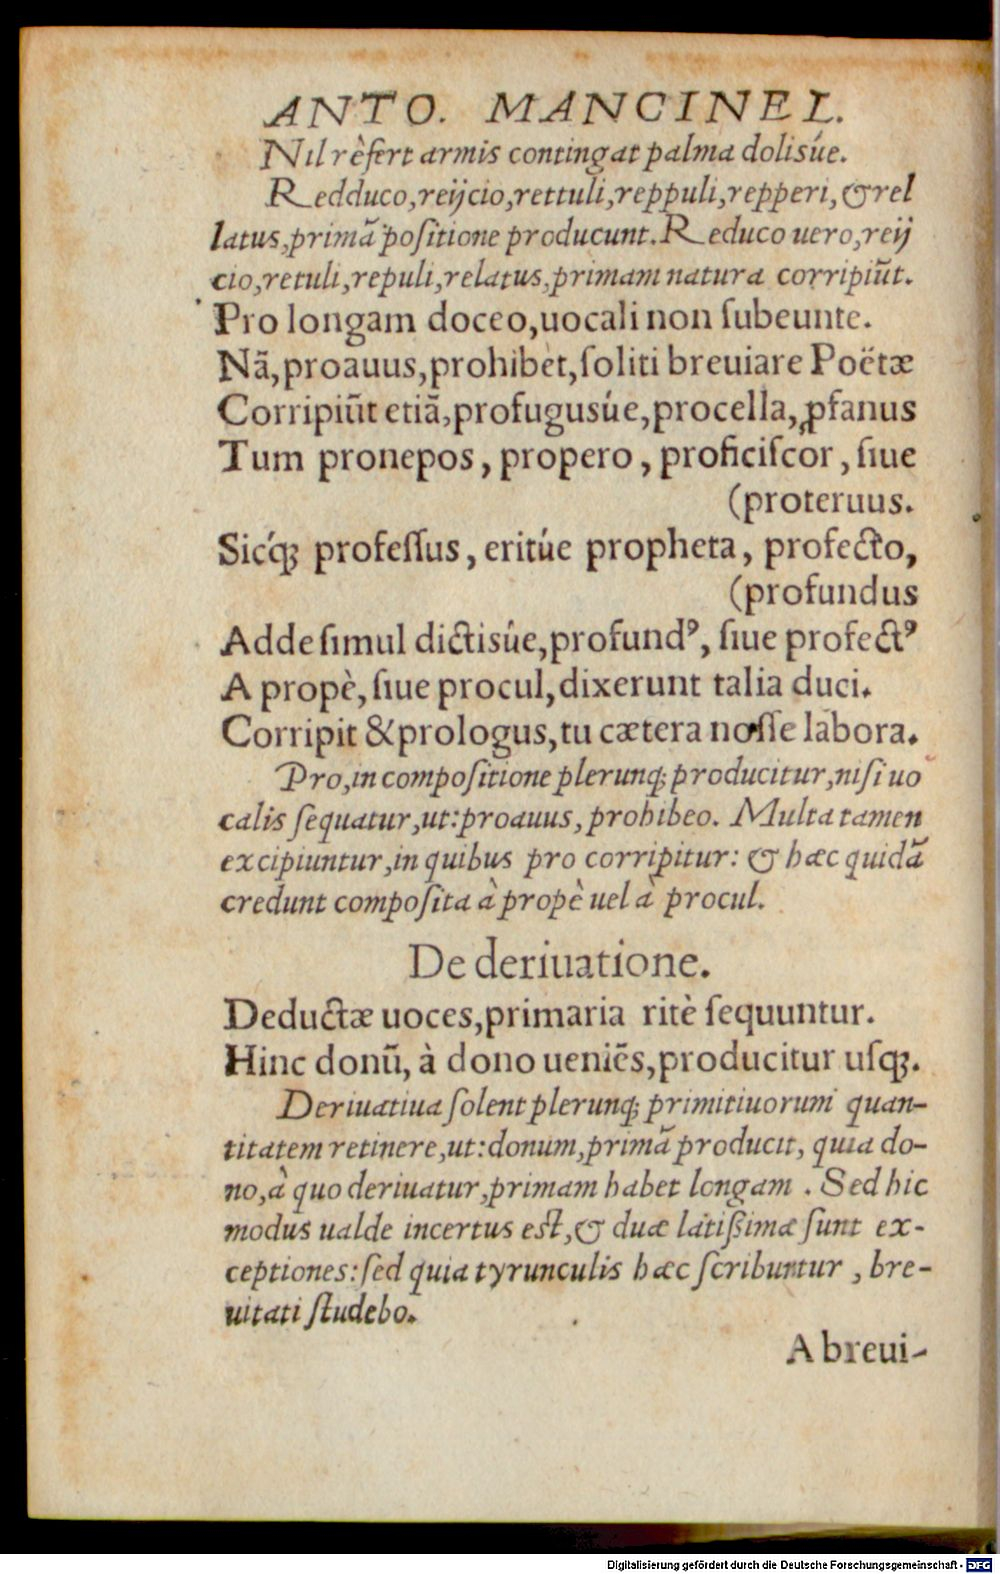 ANTO. MANCINEL.
Nil rèfert armis contingat palma dolisúe.
Redduco, reijcio, rettuli, reppuli, repperi, & rel
latus, primā positione producunt. Reduco uero, reij
cio, retuli, repuli, relatus, primam natura corripiūt.
Pro longam doceo, uocali non ſubeunte.
Nā, proauus, prohibet, ſoliti breuiare Poëtæ
Corripiūt etiā, profugusúe, procella, ꝓfanus
Tum pronepos, propero, proficiſcor, ſiue
(proteruus.
Sicq́ꝫ profeſſus, eritúe propheta, profecto,
(profundus
Adde ſimul dictisúe, profundꝰ, ſiue profectꝰ
A propè, ſiue procul, dixerunt talia duci.
Corripit & prologus, tu cætera noſſe labora.
Pro, in compoſitione plerunqꝫ producitur, niſi uo
calis ſequatur, ut: proauus, prohibeo. Multa tamen
excipiuntur, in quibus pro corripitur: & hæc quidā
credunt compoſita à propè uel à procul.
De deriuatione.
Deductæ uoces, primaria ritè ſequuntur.
Hinc donū, à dono ueniēs, producitur uſqꝫ.
Deriuatiua ſolent plerunqꝫ primitiuorum quan-
titatem retinere, ut: donum, primā producit, quia do-
no, à quo deriuatur, primam habet longam. Sed hic
modus ualde incertus eſt, & duæ latißimæ ſunt ex-
ceptiones: ſed quia tyrunculis hæc ſcribuntur, bre-
uitati ſtudebo.
A breui-
Digitalisierung gefördert durch die Deutsche Forschungsgemeinschaft - DFG